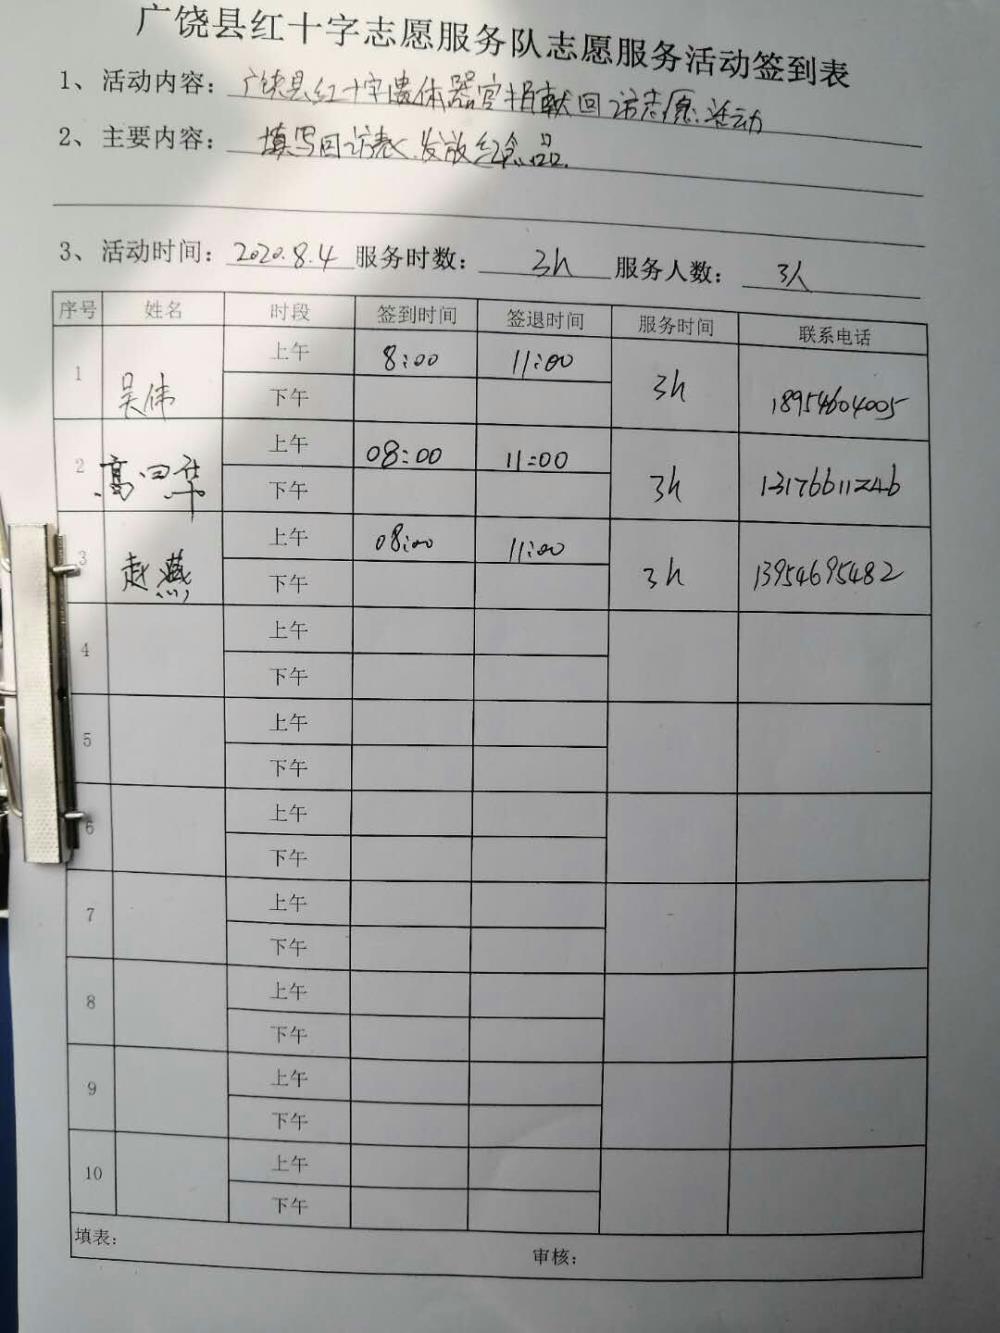 广饶县红十字志愿服务队志愿服务活动签到表
1、活动内容：广饶县红十字遗体器官捐献回访志愿活动
2、主要内容：填写回访表、发放纪念品.
3、活动时间：2020.8.4 服务时数：3h 服务人数：3人
序号 姓名 时段 签到时间 签退时间 服务时间 联系电话
1 吴伟 上午 8:00 11:00 3h 18954604005
下午
2 高 华 上午 08:00 11:00 3h 13176611246
下午
3 赵燕 上午 08:00 11:00 3h 13954695482
下午
4 上午
下午
5 上午
下午
6 上午
下午
7 上午
下午
8 上午
下午
9 上午
下午
10 上午
下午
填表： 审核：